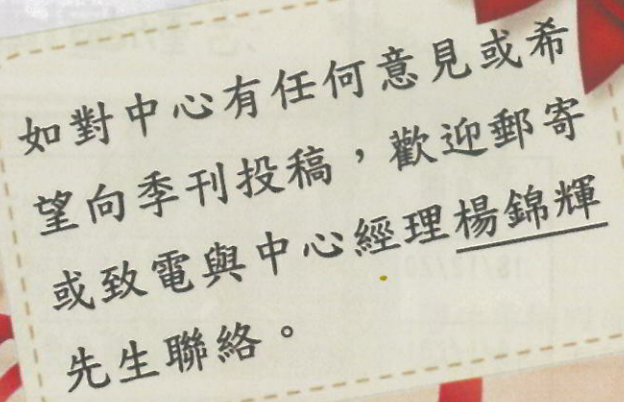 如對中心有任何意見或希
望向季刊投稿，歡迎郵寄
或致電與中心經理楊錦輝
先生聯絡。